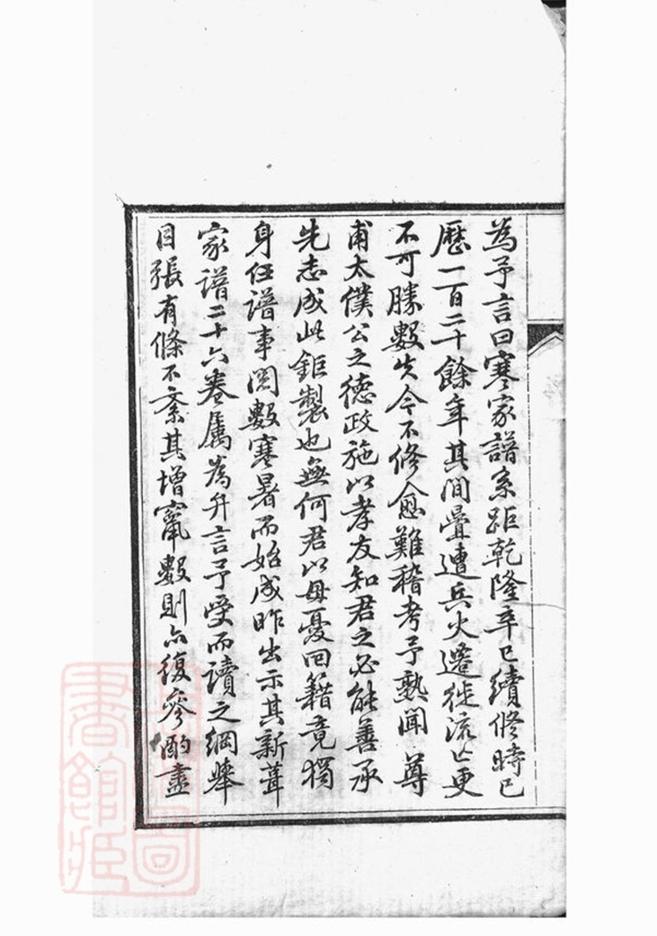 為予言曰寒家譜系距乾隆辛巳續修時已
歷一百二十餘年其間疊遭兵火遷徙流亡更
不可勝數失今不修愈難稽考予熟聞 尊
甫太僕公之德政施以孝友知君之必能善承
先志成此鉅製也無何君以母憂回籍竟獨
身任譜事閱數寒暑而始成昨出示其新葺
家譜二十六卷属為弁言予受而讀之綱舉
目張有條不紊其增竄數則亦復參酌盡
圖書館藏